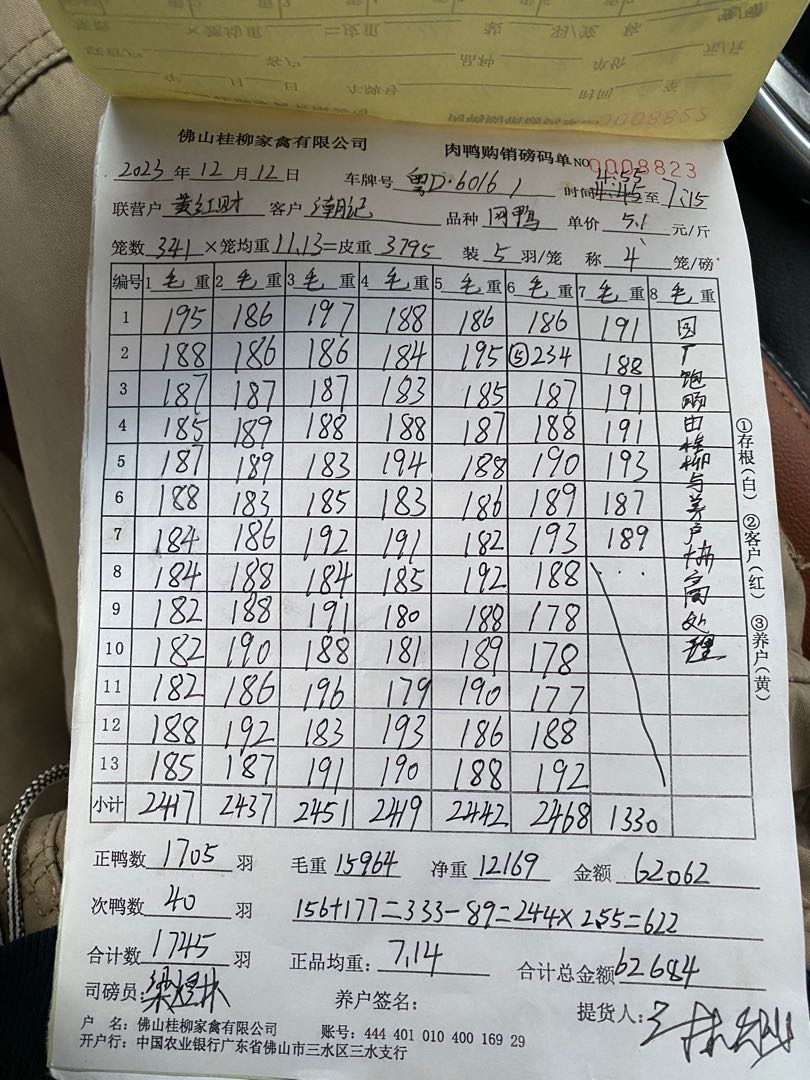 佛山桂柳家禽有限公司 肉鸭购销磅码单 NO 0008823
2023年12月12日 车牌号 粤D·60161 时间 4:55 4:45 至 7:15
联营户 黄红财 客户 潮记 品种 网鸭 单价 5.1 元/斤
笼数 341 ×笼均重 11.13 =皮重 3795 装 5 羽/笼 称 4 笼/磅
编号 1 毛重 2 毛重 3 毛重 4 毛重 5 毛重 6 毛重 7 毛重 8 毛重
1 195 186 197 188 186 186 191
2 188 186 186 184 195 ⑤234 188
3 187 187 187 183 185 187 191
4 185 189 188 188 187 188 191
5 187 189 183 194 188 190 193
6 188 183 185 183 186 189 187
7 184 186 192 191 182 193 189
8 184 188 184 185 192 188
9 182 188 191 180 188 178
10 182 190 188 181 189 178
11 182 186 196 179 190 177
12 188 192 183 193 186 188
13 185 187 191 190 188 192
小计 2417 2437 2451 2419 2442 2468 1330
回厂饱肠由桂柳与养户协商处理
①存根（白） ②客户（红） ③养户（黄）
正鸭数 1705 羽 毛重 15964 净重 12169 金额 62062
次鸭数 40 羽 156+177=333-89=244×2.55=622
合计数 1745 羽 正品均重: 7.14 合计总金额 62684
司磅员: 梁煜林 养户签名: 提货人:
户 名: 佛山桂柳家禽有限公司 账号: 444 401 010 400 169 29
开户行: 中国农业银行广东省佛山市三水区三水支行